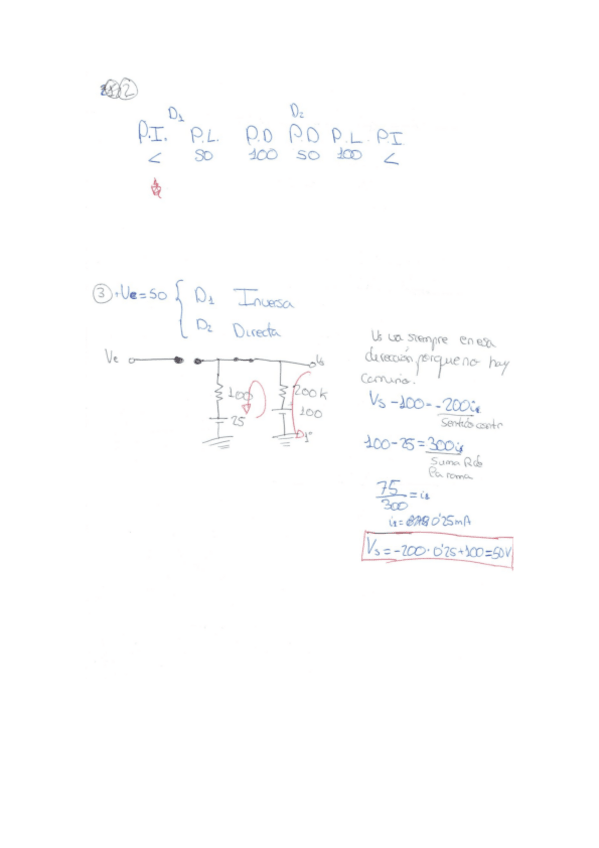 2
D₁ D₂
P.I. P.L. P.D P.D P.L. P.I
< 50 100 50 100 <
③ +Ve=50 { D₁ Inversa
D₂ Directa
Vs va siempre en esa
dirección porque no hay
camino.
Ve Vs
100 200k
25 100
Vs -100 = -200i₁
Sentido contr
100-25 = 300i₁
Suma R de
la rama
75/300 = i₁
i₁ = 0'25mA
Vs = -200 · 0'25 + 100 = 50V